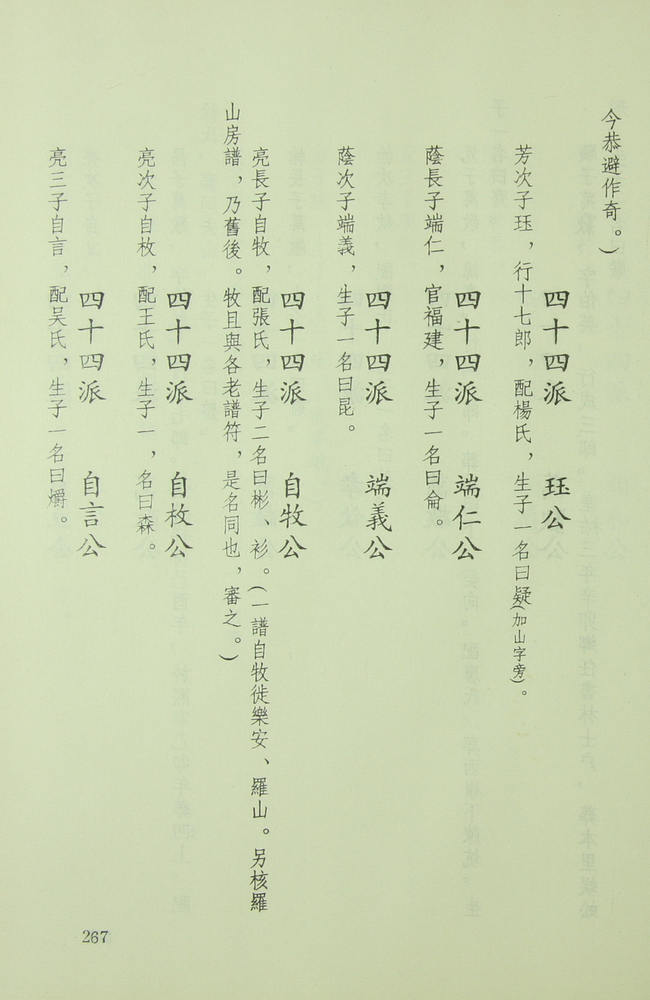 今恭避作奇。)
四十四派　珏公
芳次子珏，行十七郎，配楊氏，生子一名曰疑(加山字旁)。
四十四派　端仁公
蔭長子端仁，官福建，生子一名曰侖。
四十四派　端義公
蔭次子端義，生子一名曰昆。
四十四派　自牧公
亮長子自牧，配張氏，生子二名曰彬、衫。(一譜自牧徙樂安、羅山。另核羅
山房譜，乃舊後。牧且與各老譜符，是名同也，審之。)
四十四派　自枚公
亮次子自枚，配王氏，生子一，名曰森。
四十四派　自言公
亮三子自言，配吴氏，生子一名曰爝。
267